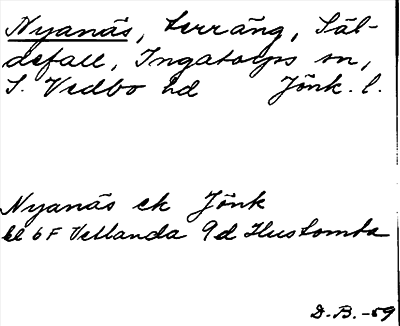 Nyanäs, terräng, Säl-
defall, Ingatorps sn,
S. Vedbo hd Jönk. l.
Nyanäs ek Jönk
bl 6F Vetlanda 9d Hustomta
D.B. -59